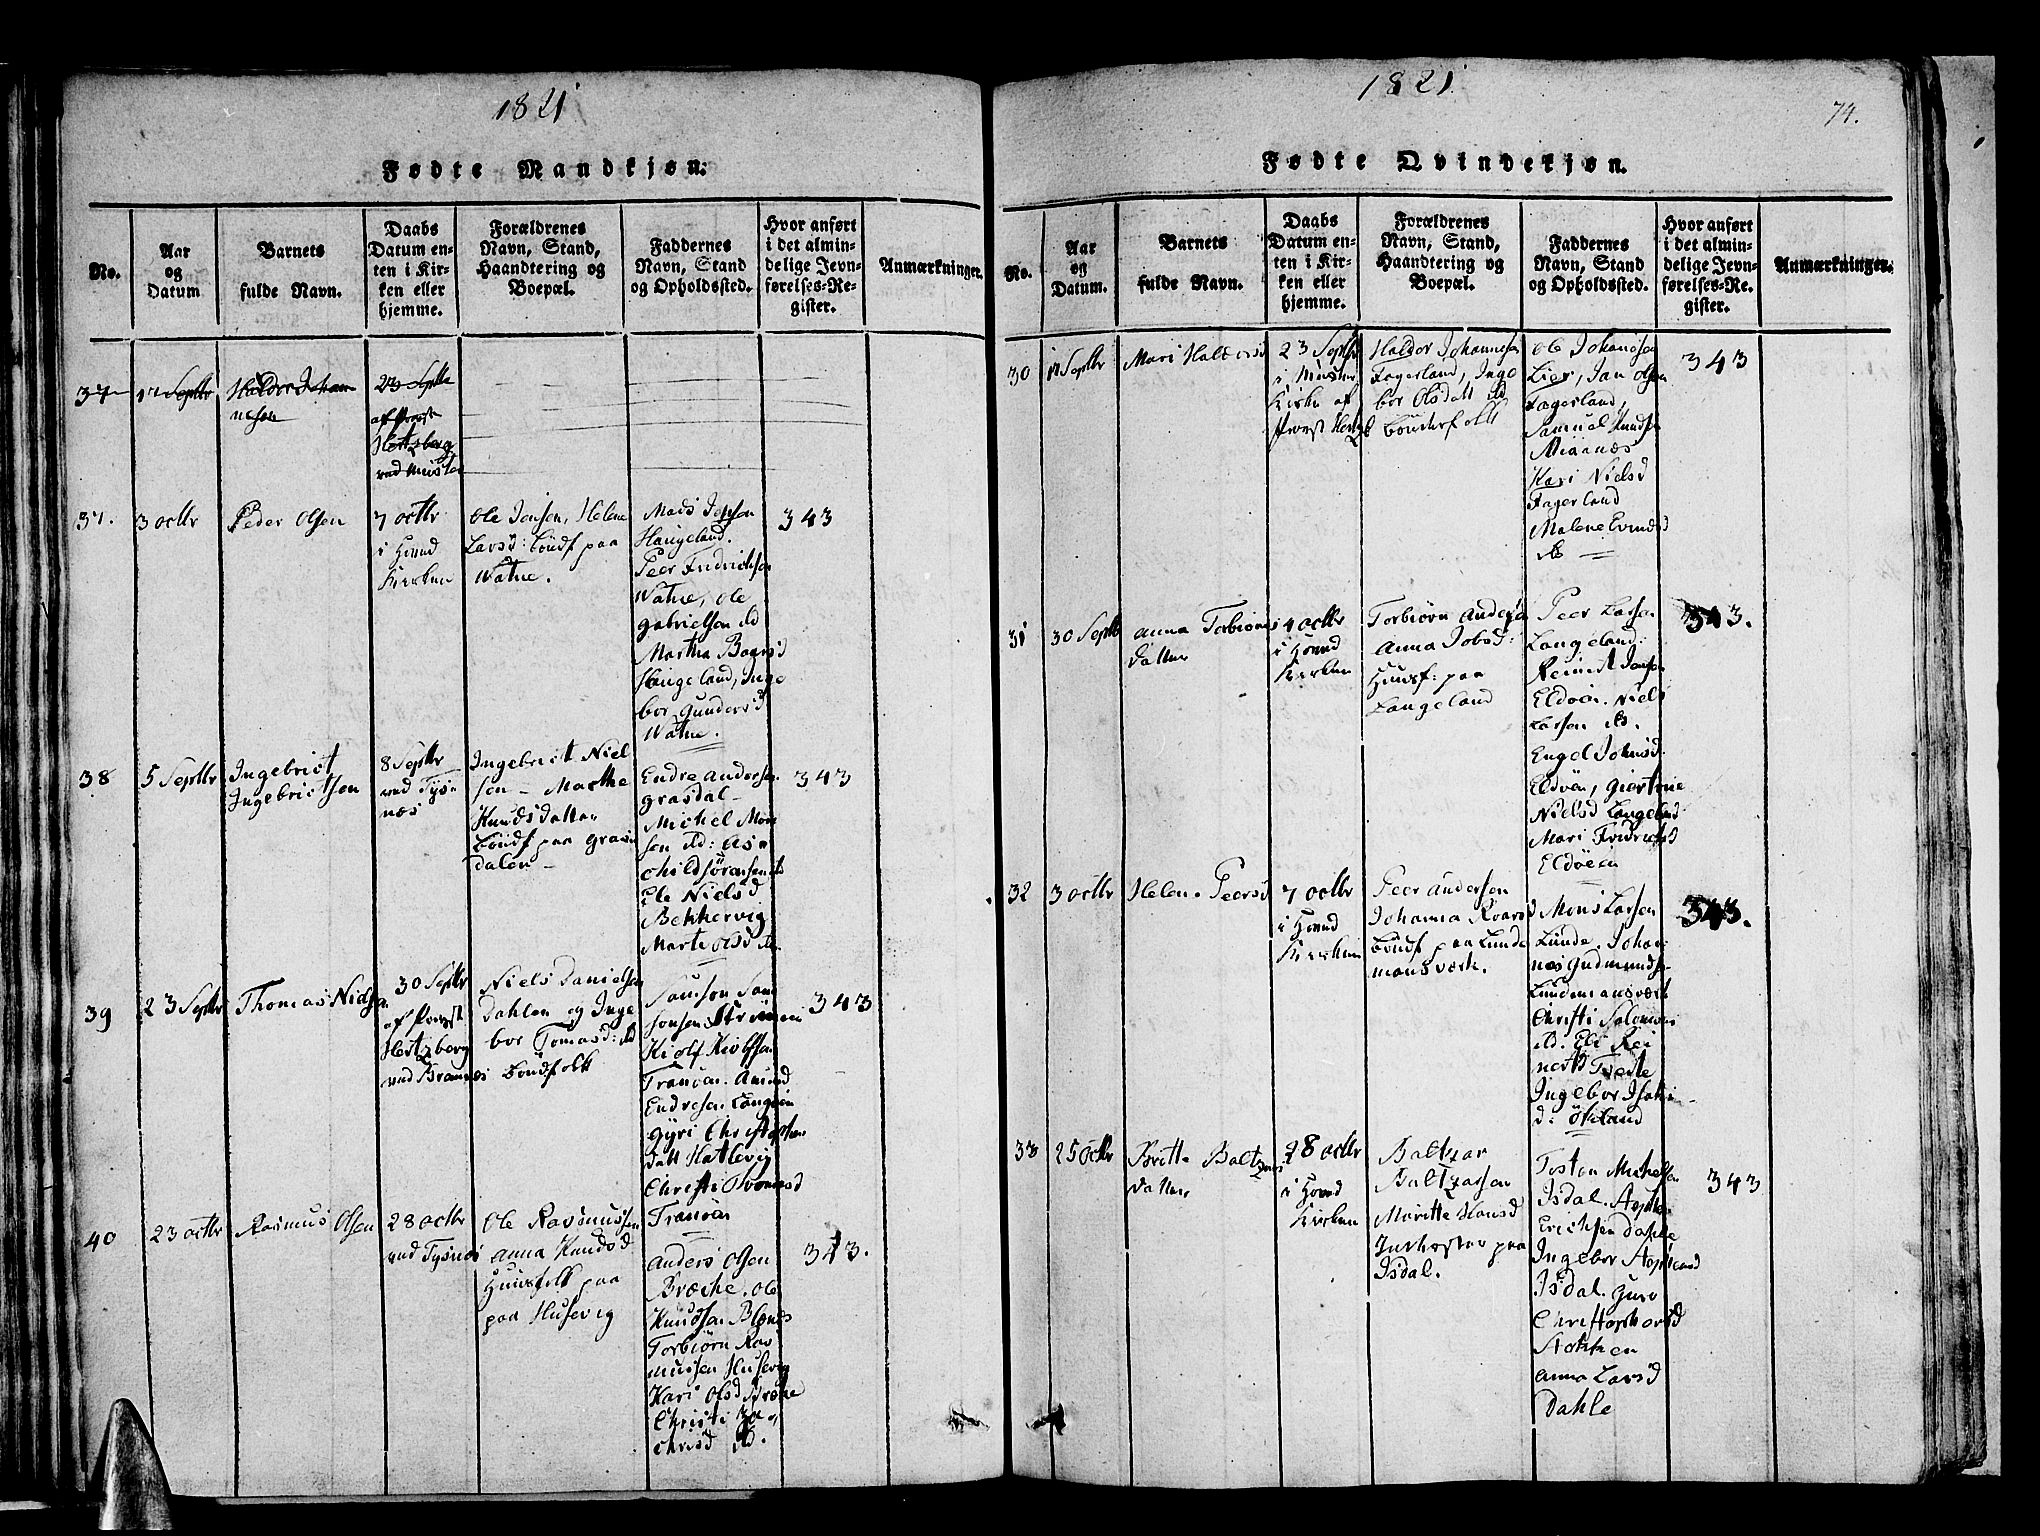 1821
Fødte Mandkjøn:
No.
Aar
og
Datum
Barnets
fulde Navn.
Daabs
Datum en-
ten i Kir-
ken eller
hjemme.
Forældrenes
Navn, Stand,
Haandtering og
Boepæl.
Faddernes
Navn, Stand
og Opholdssted.
Hvor anført
i det almin-
delige Jevn-
førelses-Re-
gister.
Anmærkninger.
37
17 Septbr
Haldor Johan
nesen
23 Septbr
af Provst
Hertzberg
ved Muster
37.
3 octbr
Peder Olsen
7 octbr
i Hound
Kirken
Ole Jonsen, Helene
Larsd: böndf paa
Watne.
Mads Jepsen
Haugeland.
Peer Fredrichsen
Watne, ole
gabrielsen ibd
Martha Baarsd
Haugeland, Inge
bor gundersd
Watne.
343
38
5 Septbr
Ingebrict
Ingebrictsen
8 Septbr
ved Tys-
næs
Ingebrict Niel
sen - Marthe
Knudsdatter
böndf paa Grasu
dalen -
Endre andersen
grasdal -
Michel Mon
sen ibd: As-
child sörensen ib
Ele Nielsd
Bekkervig
Marte olsd ib.
343
39
23 Septbr
Thomas Nielsen
30 Septbr
af Provst
Hertzberg
ved Bramnes
Niels Danielsen
Dahlen og Inge
bor Tomasd: ibd
böndfolk
Samson Sam
sonsen Strömen
Kiolf Kiolfsen
Tranöen. Amund
Endresen Langöen
gÿri Christophers
datt Hatlevig
Christi Tvomasd
Tranöen
343
40
23 octbr
Rasmus Olsen
28 octbr
ved Tysnes
Ole Rasmussen
anna Knudsd
Huusfolk paa
paa Husevig
anders Olsen
Bræcke. Ole
Knudsen Blænes
Torbiörn Ras
mussen Husevig
Kari Olsd Bræke
Christi Za-
chrisd ibd.
343.
1821
74.
Fødte Qvindekjøn.
No.
Aar
og
Datum.
Barnets
fulde Navn.
Daabs
Datum en-
ten i Kir-
ken eller
hjemme.
Forældrenes
Navn, Stand,
Haandtering og
Boepæl.
Faddernes
Navn, Stand
og Opholdssted.
Hvor anført
i det almin-
delige Jevn-
førelses-Re-
gister.
Anmærkninger.
30
17 Septbr
Mari Haldorsd
23 Septbr
i Muster
Kirke af
Provst Hertzb
Haldor Johannesen
Fagerland, Inge
bor Olsdatt ibd
bönderfolk
ole Johansen
Lier, Jan Olsen
Fagerland,
Samuel Knudsen
Miaanæs
Kari Nielsd
Fagerland
Malene Evindsd
ib
343
31
30 Septb
anna Torbiöns
datter
4 octbr
i Hound
Kirken
Torbiörn Andersen
Anna Jobsd:
Huusf: paa
Langeland
Peer Larsen
Langeland:
Reinert Jansen
Eldöen. Niels
Larsen ib.
Engel Johnsd
Eldöen, giertrue
Nielsd Langeland
Mari Fridrichsd
Eldöen
343.
32
3 octbr
Helene Peersd
7 octbr
i Hound
Kirken
Peer Andersen
Johanna Roarsd
böndf paa Lunde
mansværk.
Mons Larsen
Lunde. Johan
nes Gudmundsen
Lundemansværk
Christi Salomons
ibd. Eli Rei
nertsd Tveite
Ingebor Isaks
d: ökeland
343.
33
25 octbr
Britte Baltzers
datter
28 octbr
i Hound
Kirken
Baltzar
Baltzarsen
Maritte Hansd
Inderster paa
Isdal.
Tosten Michelsen
Isdal. Asphen
Erichsen Dahle
Ingebor Asplensd
Isdal. Guro
Christophersd
Stokken
anna Larsd
Dahle
343